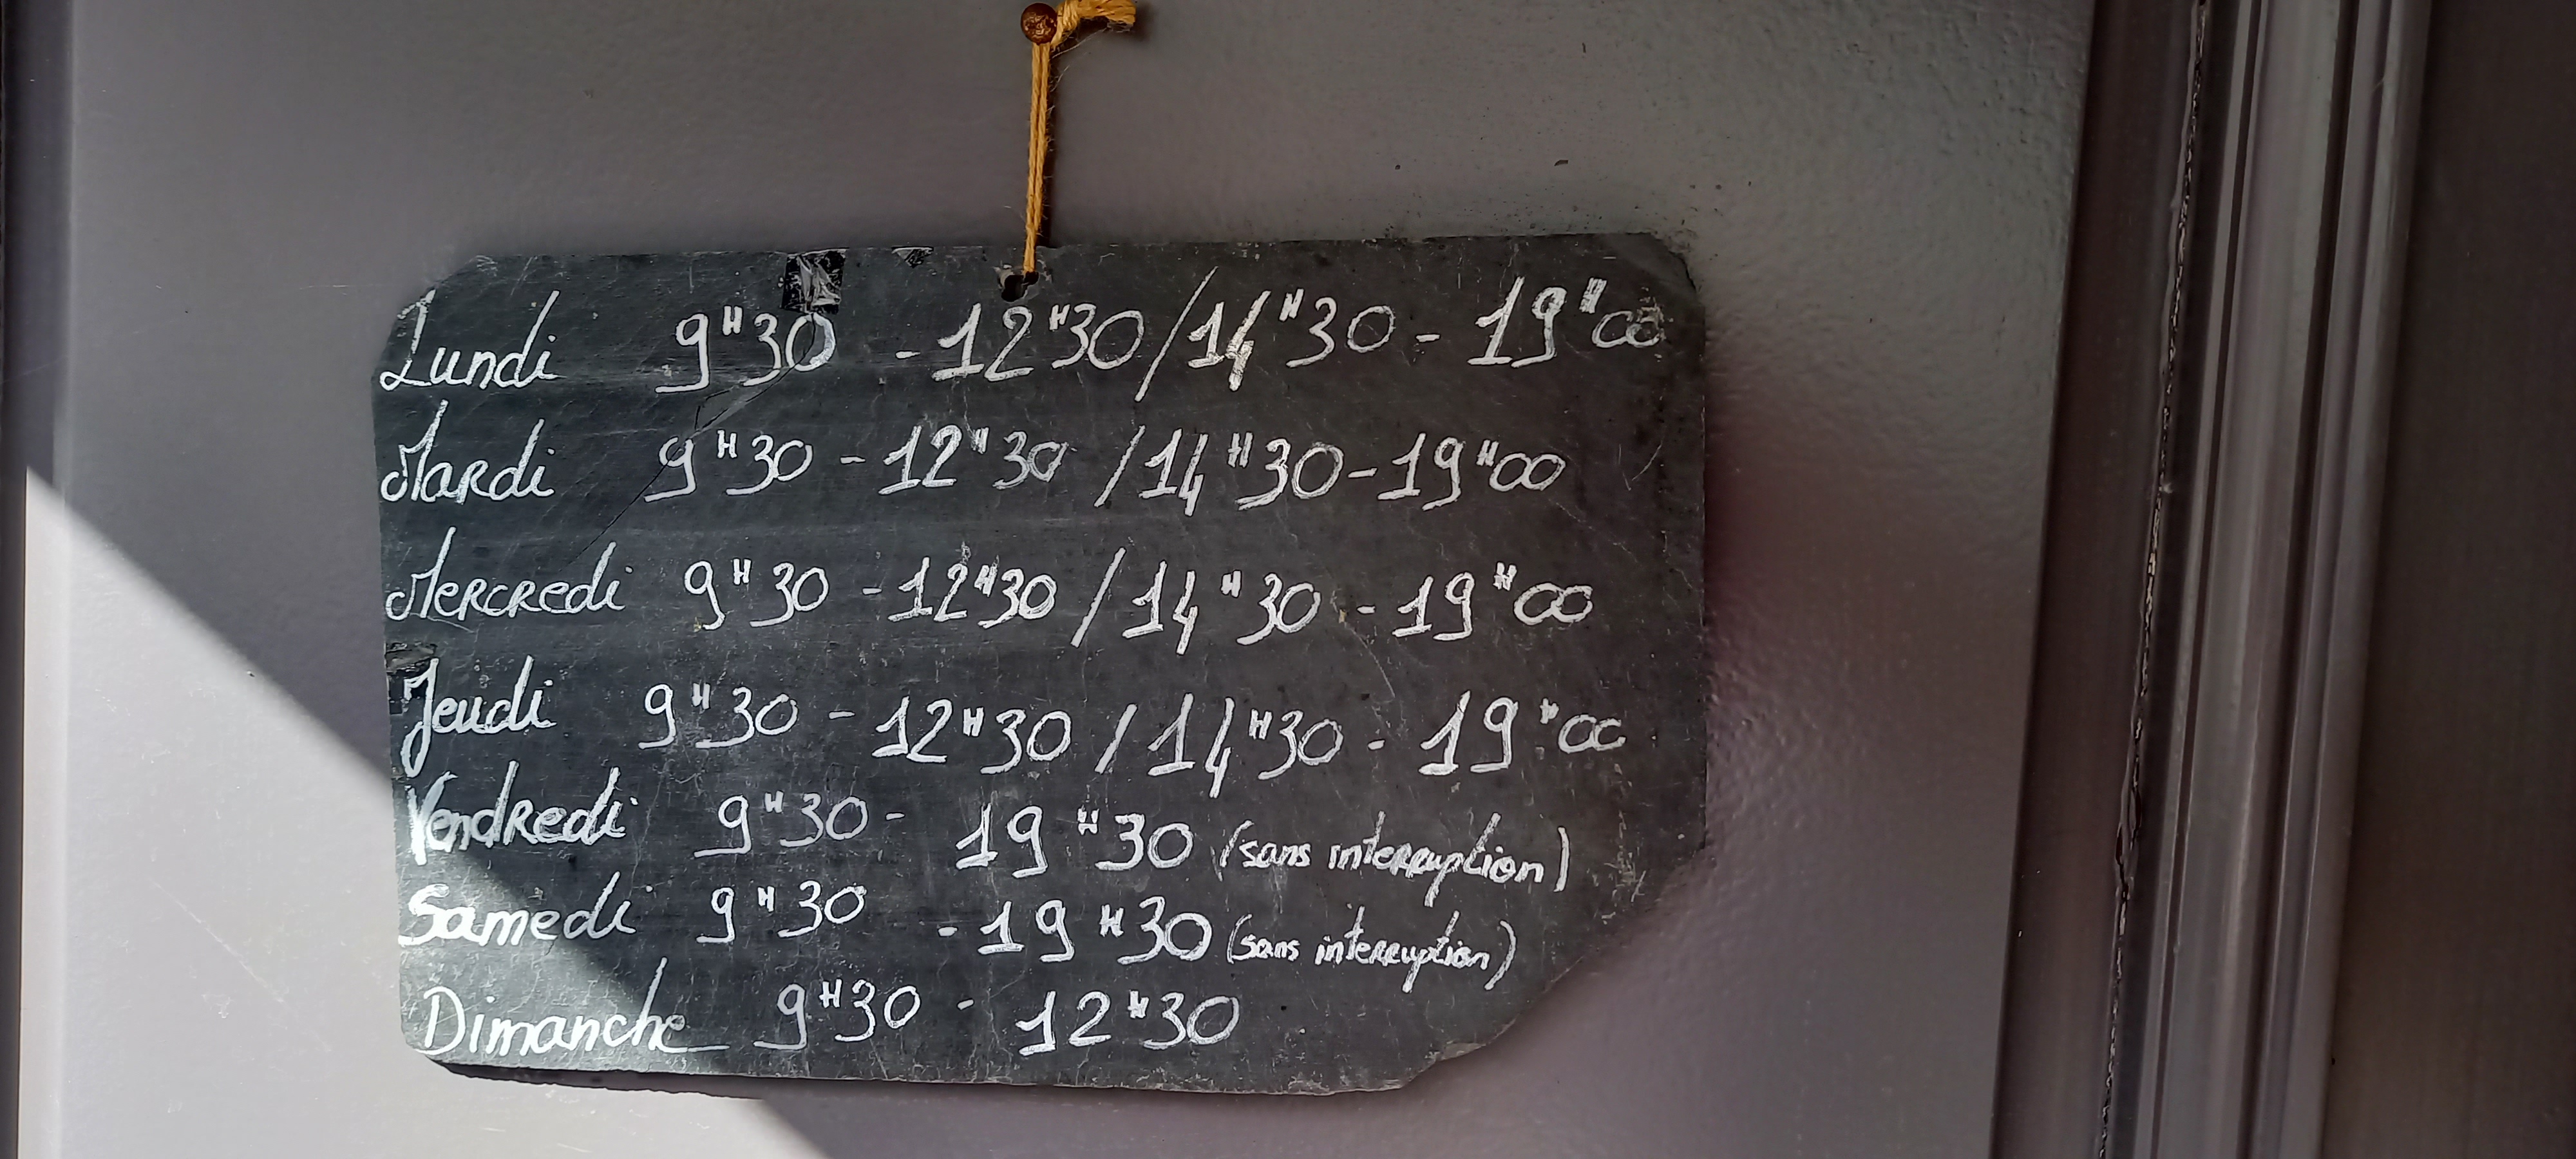 Lundi 9H30 - 12H30 / 14H30 - 19H00
Mardi 9H30 - 12H30 / 14H30 - 19H00
Mercredi 9H30 - 12H30 / 14H30 - 19H00
Jeudi 9H30 - 12H30 / 14H30 - 19H00
Vendredi 9H30 - 19H30 (sans interruption)
Samedi 9H30 - 19H30 (sans interruption)
Dimanche 9H30 - 12H30